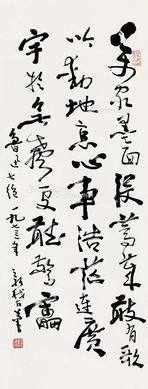 萬家墨面没蒿萊敢有歌
吟動地哀心事浩茫連廣
宇於無聲處聽驚雷
魯迅七绝一九七三年